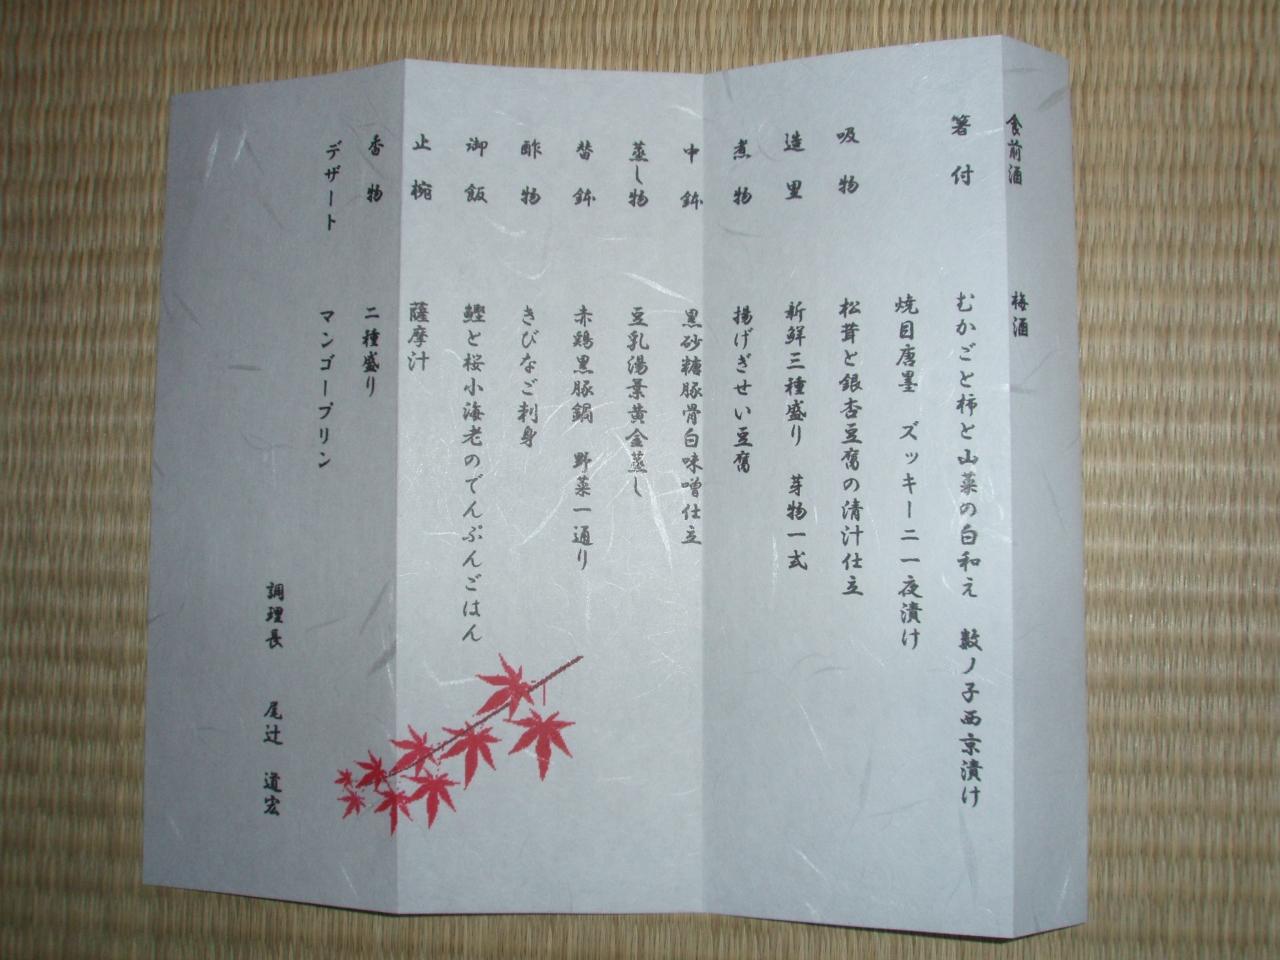 食前酒　梅酒
箸付　むかごと柿と山菜の白和え　数ノ子西京漬け
焼目唐墨　ズッキーニ一夜漬け
吸物　松茸と銀杏豆腐の清汁仕立
造里　新鮮三種盛り　芽物一式
煮物　揚げぎせい豆腐
中鉢　黒砂糖豚骨白味噌仕立
蒸し物　豆乳湯葉黄金蒸し
替鉢　赤鶏黒豚鍋　野菜一通り
酢物　きびなご刺身
御飯　鰹と桜小海老のでんぶんごはん
止椀　薩摩汁
香物　二種盛り
デザート　マンゴープリン
調理長　尾辻　道宏